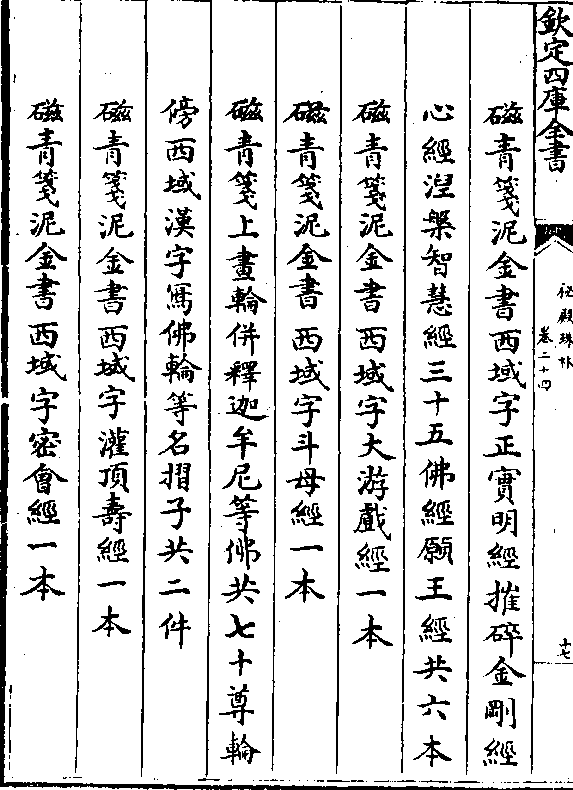 欽定四庫全書
祕殿珠林
卷二十四
十七
磁青箋泥金書西域字正實明經摧碎金剛經
心經湼槃智慧經三十五佛經願王經共六本
磁青箋泥金書西域字大游戲經一本
磁青箋泥金書西域字斗母經一本
磁青箋上畫輪併釋迦牟尼等佛共七十尊輪
傍西域漢字寫佛輪等名摺子共二件
磁青箋泥金書西域字灌頂壽經一本
磁青箋泥金書西域字密會經一本